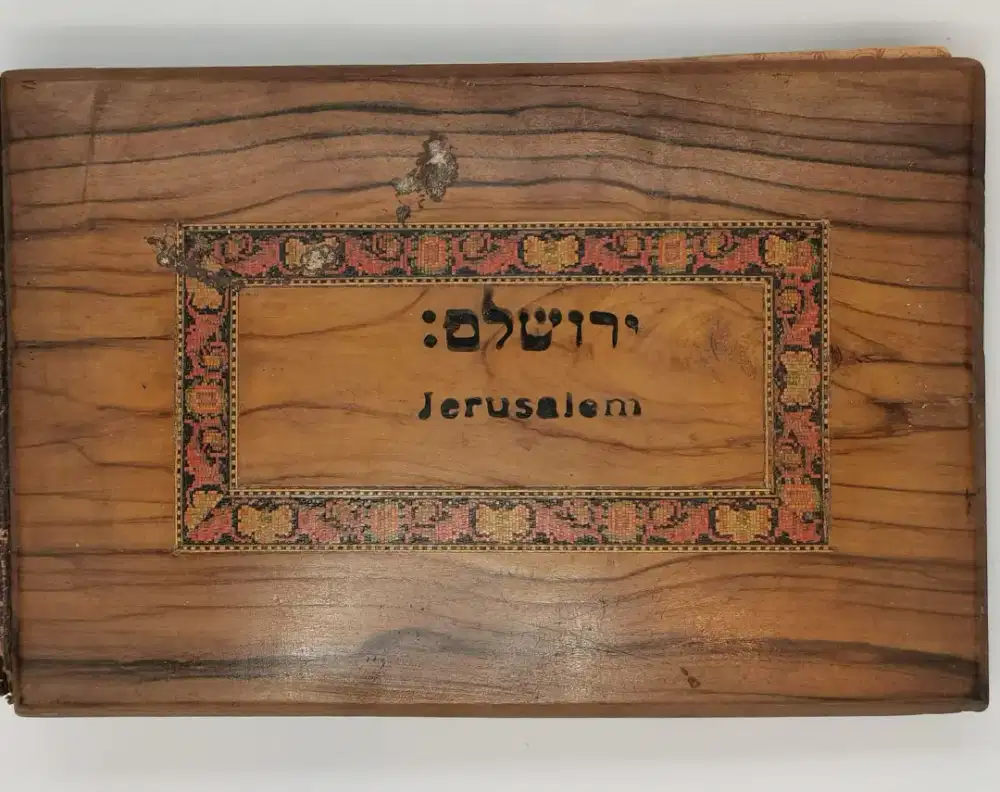 ירושלם:
Jerusalem